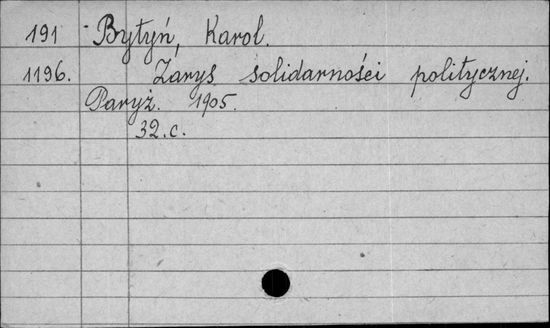 191 Bytyń, Karol.
1196. Zarys solidarności politycznej.
Paryż. 1905.
32.c.